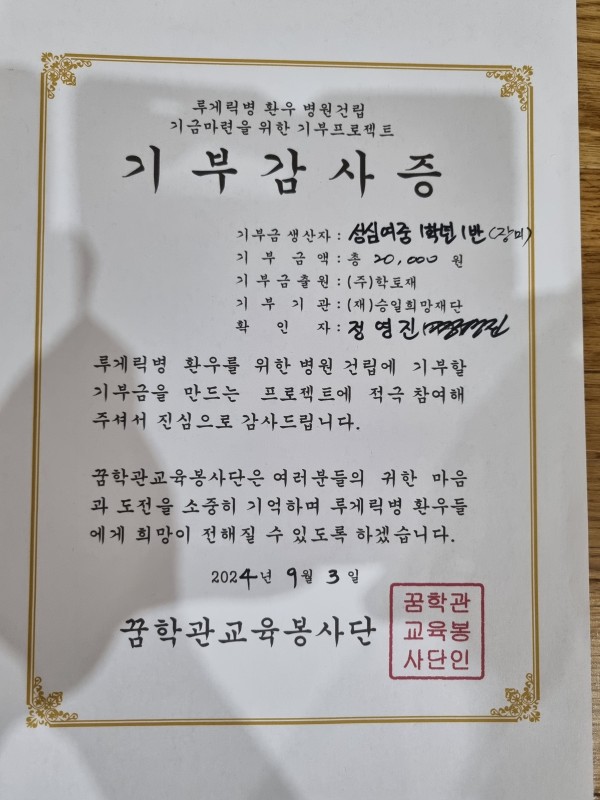 루게릭병 환우 병원건립
기금마련을 위한 기부프로젝트
기부감사증
기부금 생산자 : 성심여중 1학년 1반 (장미)
기부금액 : 총 20,000 원
기부금출원 : (주)학토재
기부기관 : (재)승일희망재단
확인자 : 정영진
루게릭병 환우를 위한 병원 건립에 기부할
기부금을 만드는 프로젝트에 적극 참여해
주셔서 진심으로 감사드립니다.
꿈학관교육봉사단은 여러분들의 귀한 마음
과 도전을 소중히 기억하며 루게릭병 환우들
에게 희망이 전해질 수 있도록 하겠습니다.
2024년 9월 3일
꿈학관교육봉사단
꿈학관
교육봉
사단인